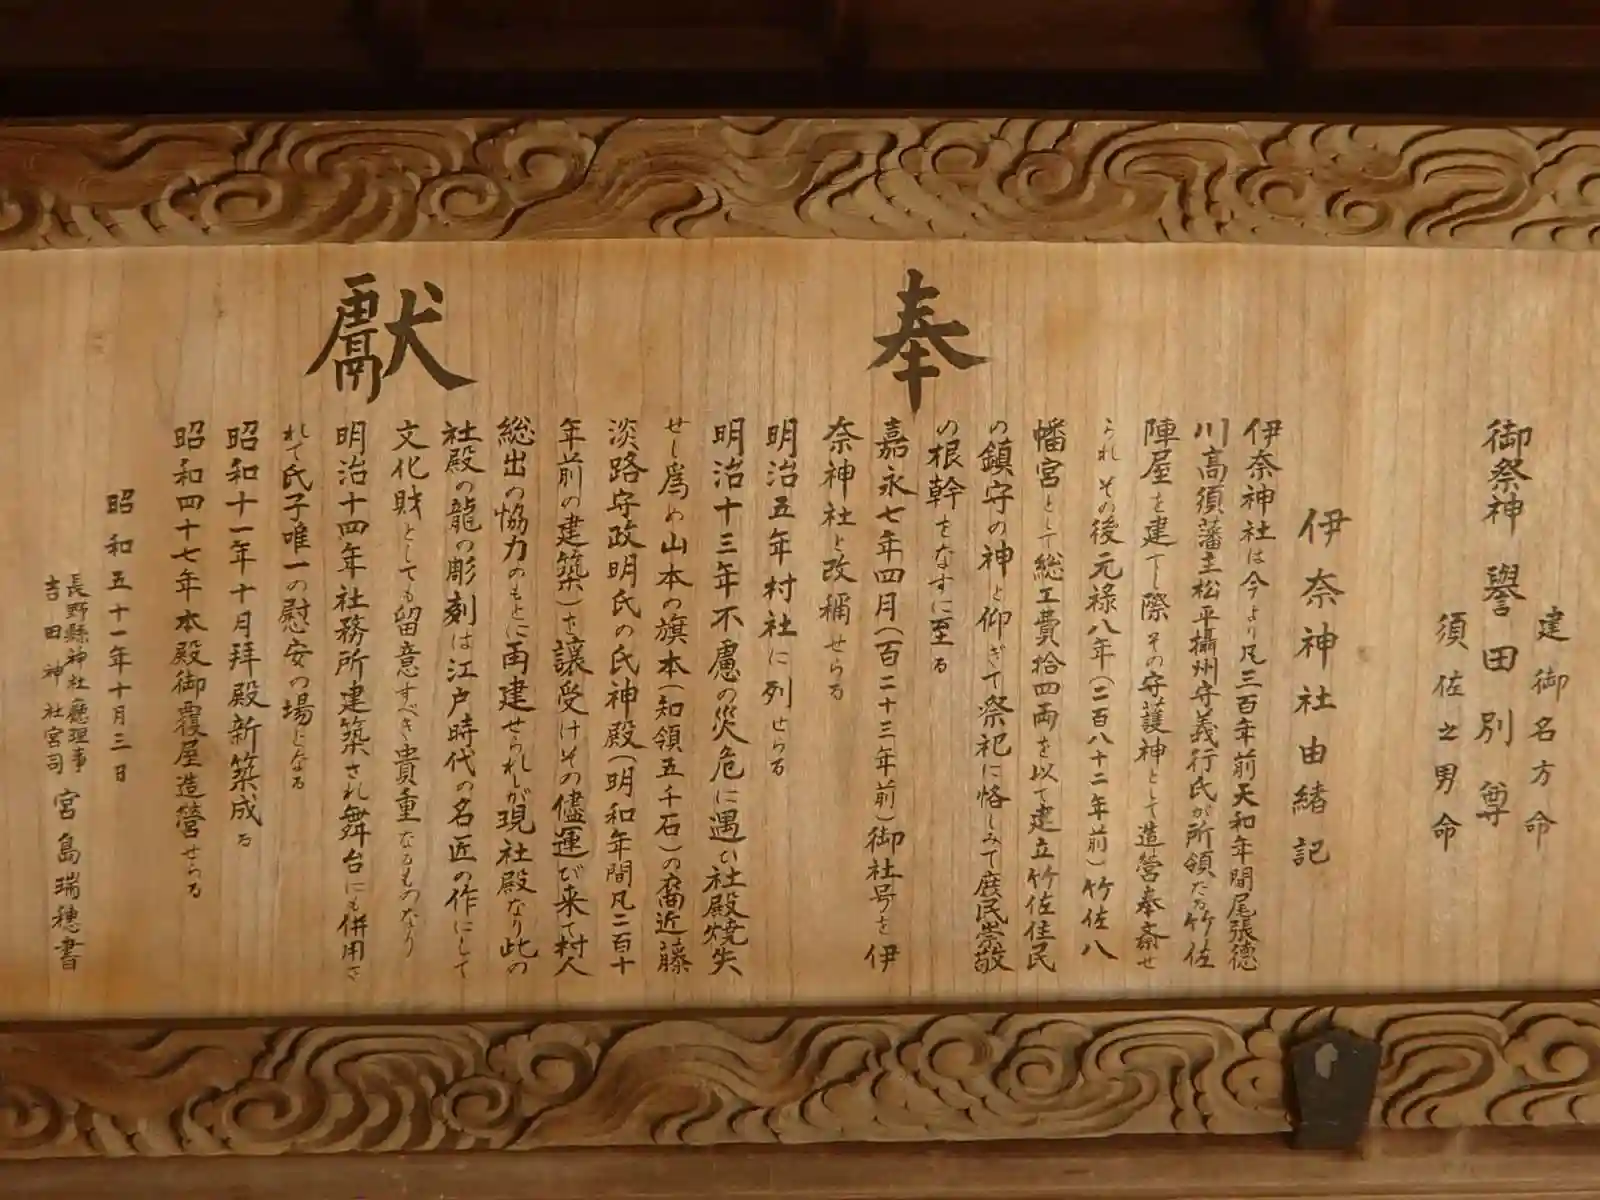 奉獻
建御名方命
御祭神 譽田別尊
須佐之男命
伊奈神社由緒記
伊奈神社は今より凡三百年前天和年間尾張德
川高須藩主松平攝州守義行氏が所領たる竹佐
陣屋を建てし際その守護神として造営奉斎せ
られその後元禄八年(二百八十二年前)竹佐八
幡宮として総工費拾四両を以て建立竹佐住民
の鎮守の神と仰ぎて祭祀に恪しみて庶民崇敬
の根幹をなすに至る
嘉永七年四月(百二十三年前)御社号を伊
奈神社と改稱せらる
明治五年村社に列せらる
明治十三年不慮の災危に遇ひ社殿焼失
せし為め山本の旗本(知領五千石)の裔近藤
淡路守政明氏の氏神殿(明和年間凡二百十
年前の建築)を譲受けその儘運び来て村人
総出の恊力のもとに再建せられしが現社殿なり此の
社殿の龍の彫刻は江戸時代の名匠の作にして
文化財としても留意すべき貴重なるものなり
明治十四年社務所建築され舞台にも併用さ
れて氏子唯一の慰安の場となる
昭和十一年十月拜殿新築成る
昭和四十七年本殿御覆屋造營せらる
昭和五十一年十月三日
長野縣神社廳理事
吉田神社宮司 宮島瑞穂書